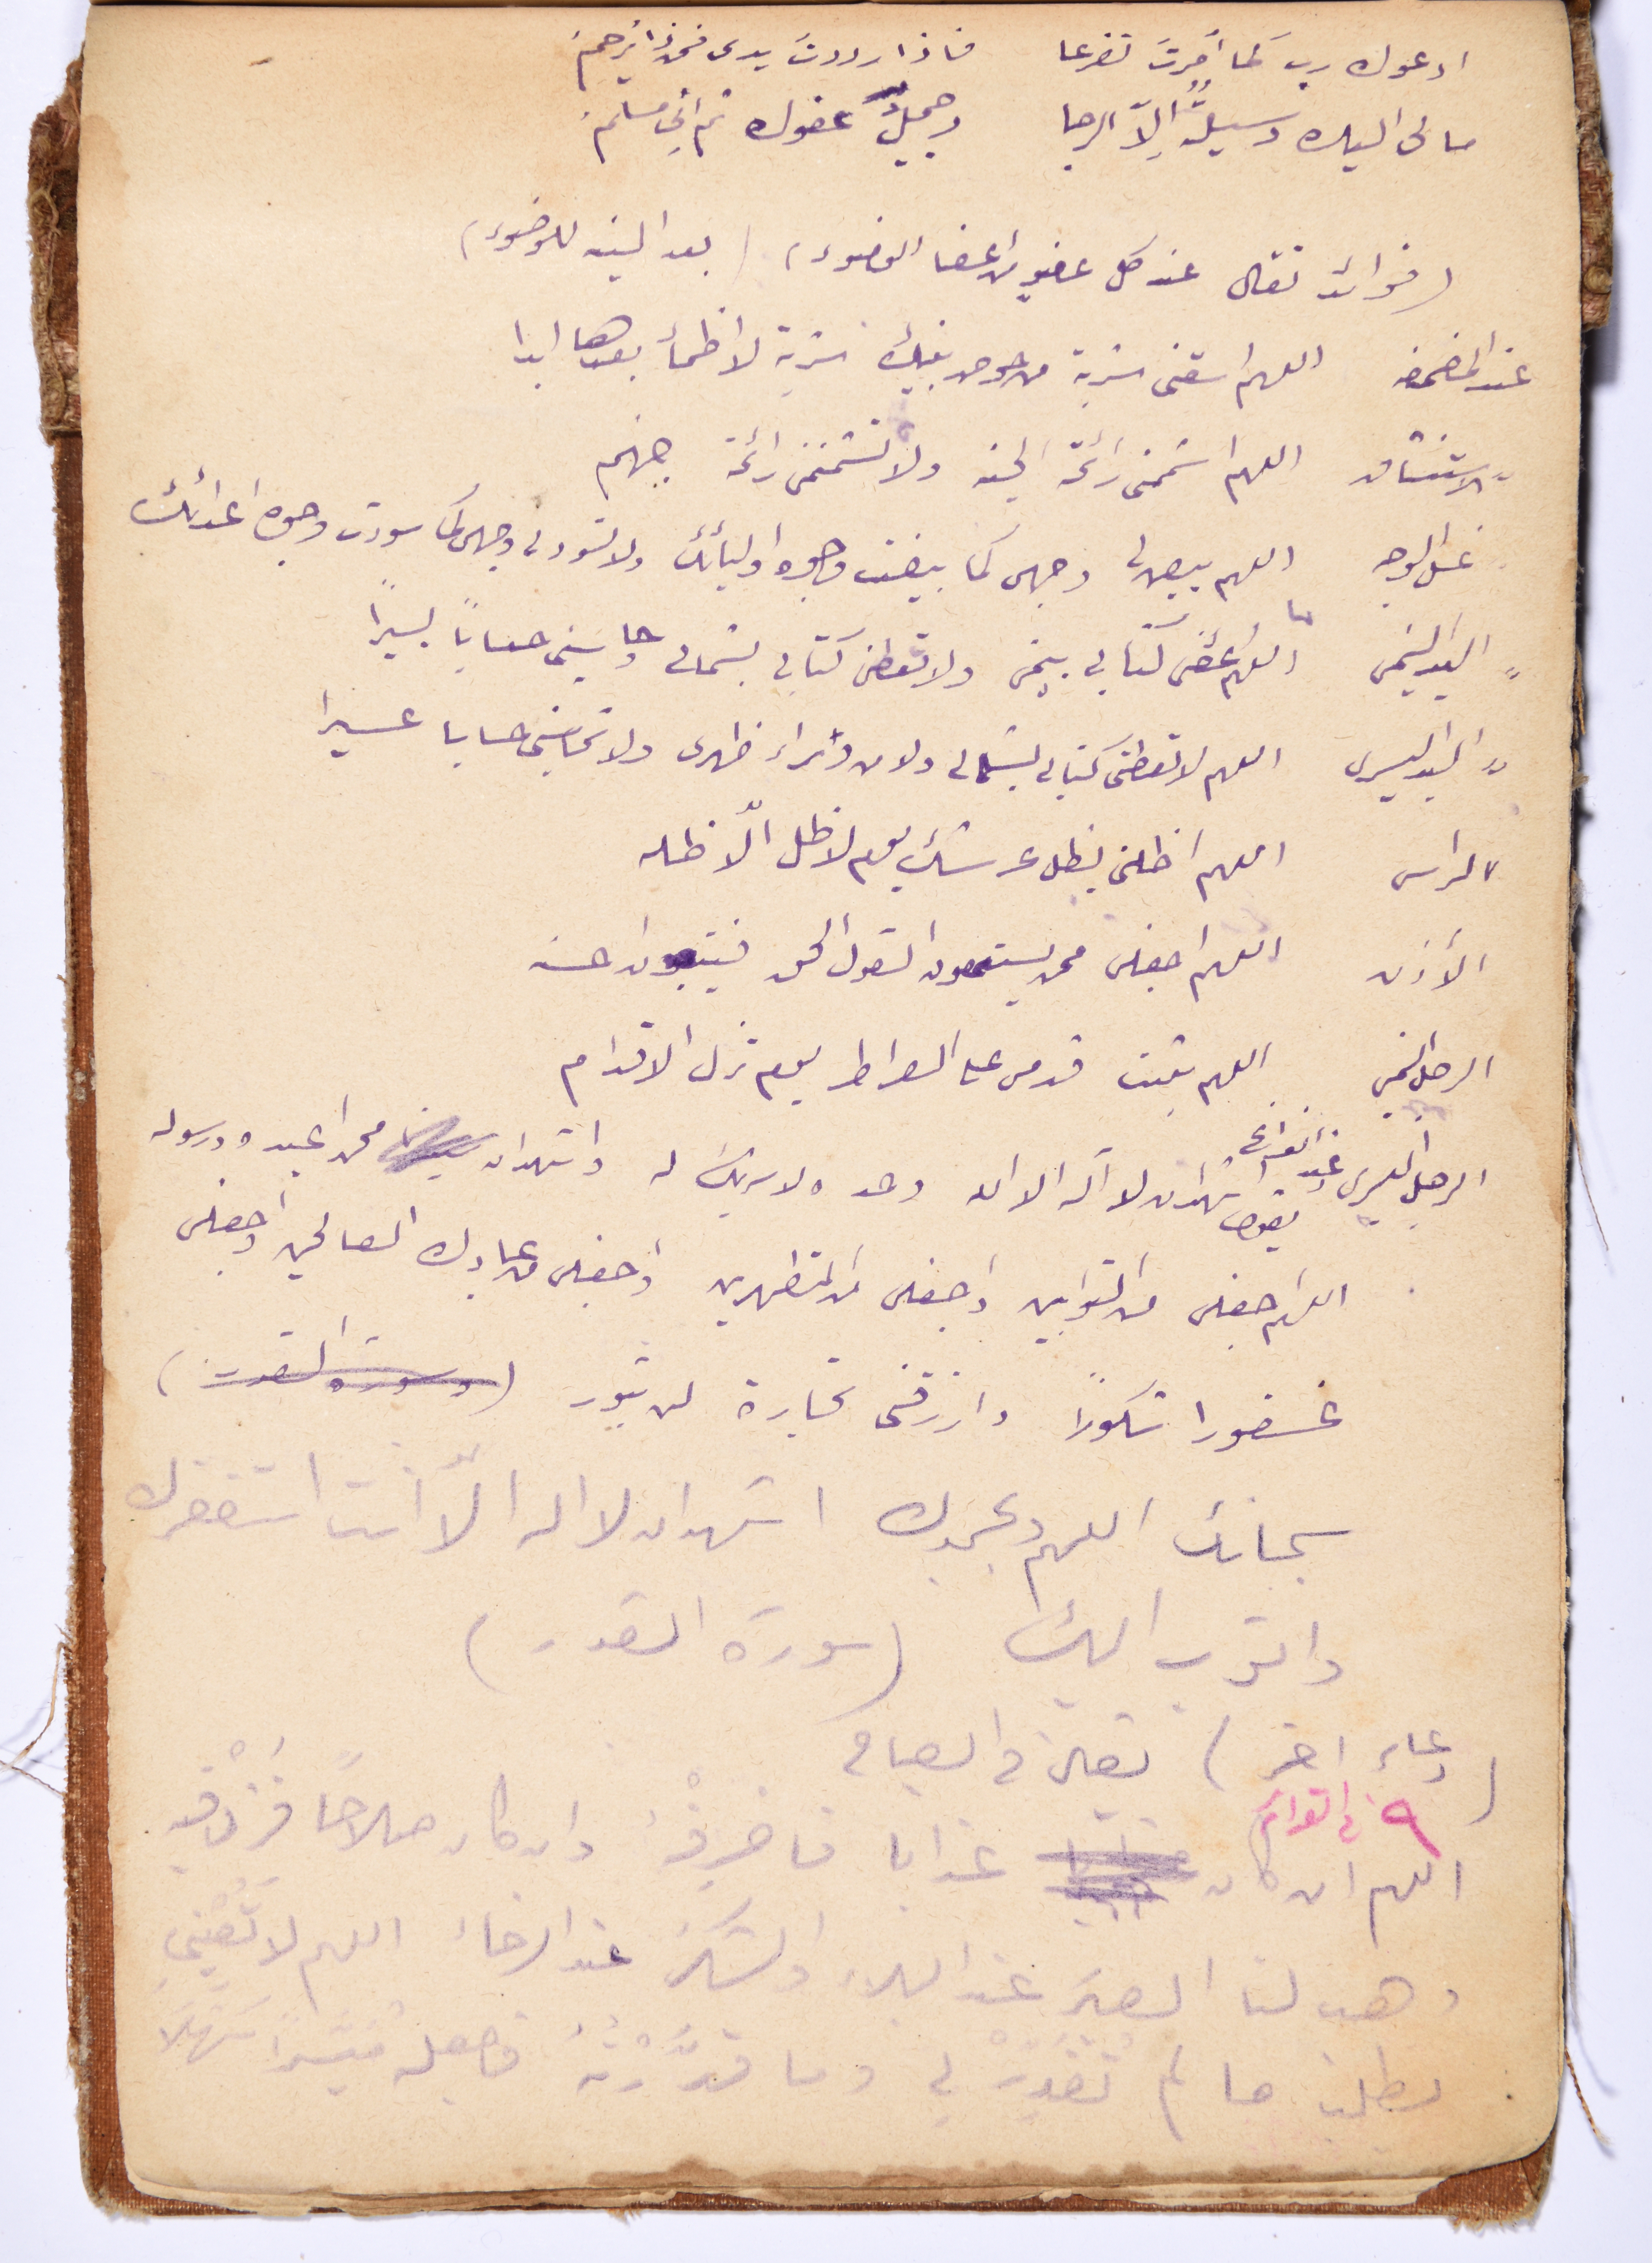 ادعوك رب كما أمرتَ تضرعا فاذا رددتَ يدى فمن ذا يرحمُ
مالى اليك وسيلةٌ إلاّ الرجا وجميلُ عفوك ثم انِى مسلمُ
(فوائد تقال عند كل عضو من اعضا الوضوء) (بعد النية للوضوء)
عند المضمضه اللهم اسقنى شربة من حوض نبيك شربة لا اظمأ بعدها ابدا
" الاستنشاق اللهم اشممنى رائحة الجنه ولا تشممنى رائحة جهنم
" غسل الوجه اللهم بيض لى وجهى كما بيضت وجوه اوليائك ولا تسود لى وجهى كما سودت وجوه اعدائك
" اليد اليمنى اللهم أعطنى كتابى بيمنى ولا تعطنى كتابى بشمالى وحاسبنى حساباً يسيرًا
" اليد اليسرى اللهم لا تعطنى كتابى بشمالى ولا من وراء ظهرى ولا تحاسبنى حسابا عسيرا
" الراس اللهم اظلنى بظل عرشك يوم لا ظل الّا ظله
الأذن اللهم اجعلنى ممن يستمعون القول الحق فيتبعون احسنه
الرجل اليمنى اللهم ثبت قدمى على الصراط يوم تزل الاقدام
الرجل اليسرى وعند الفراغ يقول اشهد ان لا آله الا الله وحده لا شريك له واشهد ان محمدا عبده ورسوله
اللهم اجعلنى من التوابين واجعلنى من المتطهرين واجعلنى من عبادك الصالحين واجعلنى
غفورا شكورًا وارزقنى تجارة لن تبور (وسورة القدر)
سبحانك اللهم وبحمدك اشهد ان لا اله الّا أنت استغفرك
واتوب اليك (سورة القدر)
(دعاء اخر) يقال فى الصباح
٩ فى التوائم
اللهم ان كان عذابا فاصرفهُ وان كان صلاحًا فزدْ فيه
وهب لنا الصبرَ عند البلاء والشكرَ عند الرخاء اللهم لا تُعَنِّينِى
بطلب ما لم تُقَدِرْ لى وما قدَّرْتَهُ فاجعله مُيَسَّرًا سَهْلاً